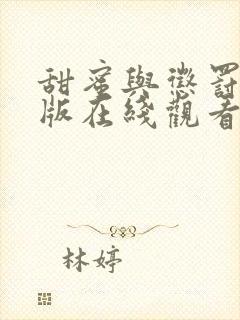 甜蜜與懲罰
版在綫觀看
林婷